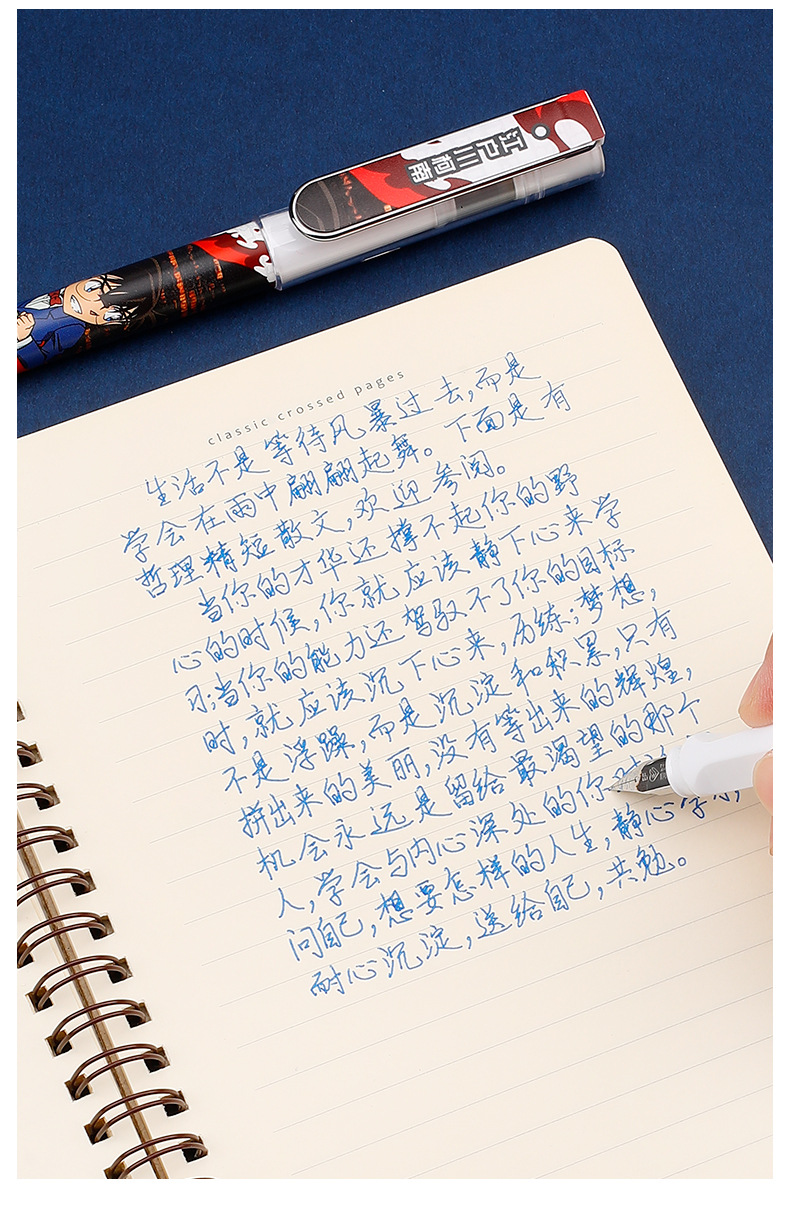 江户川柯南
classic crossed pages
生活不是等待风暴过去,而是
学会在雨中翩翩起舞。下面是有
哲理精短散文,欢迎参阅。
当你的才华还撑不起你的野
心的时候,你就应该静下心来学
习;当你的能力还驾驭不了你的目标
时,就应该沉下心来,历练;梦想,
不是浮躁,而是沉淀和积累,只有
拼出来的美丽,没有等出来的辉煌,
机会永远是留给最渴望的那个
人,学会与内心深处的你
问自己,想要怎样的人生,静心学习,
耐心沉淀,送给自己,共勉。